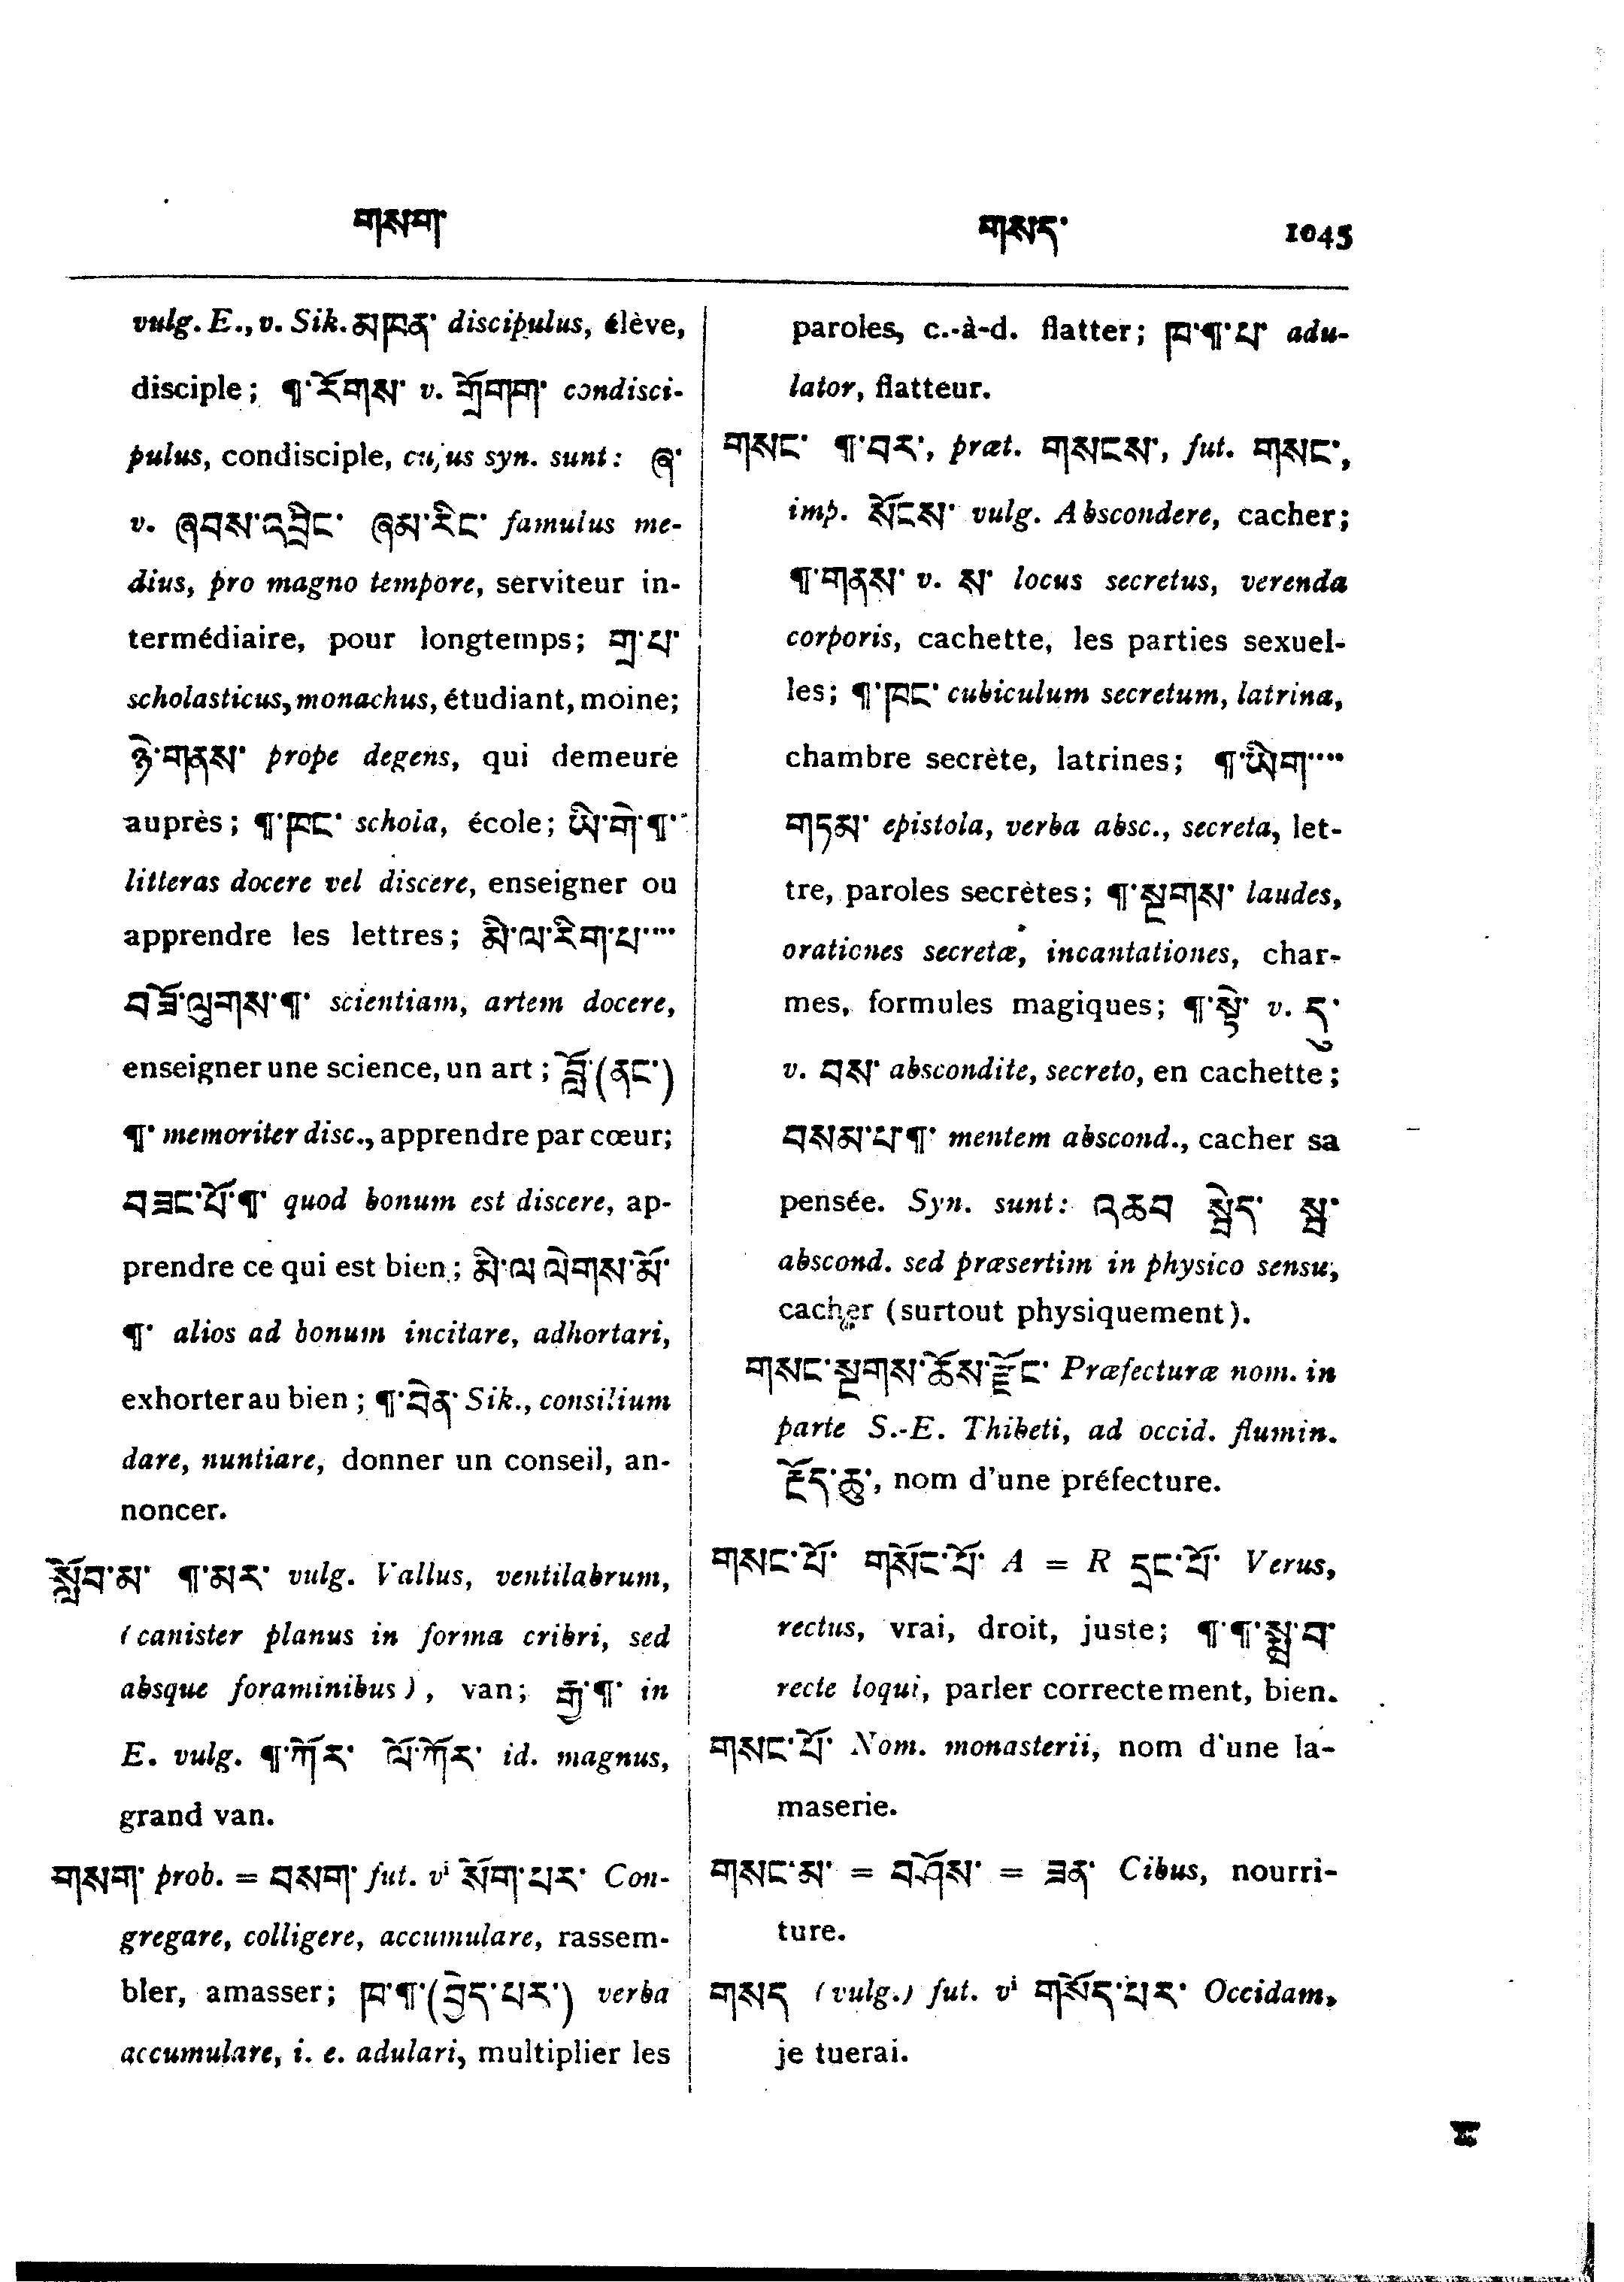 གསག་
གསད་ 1045
vulg. E., v. Sik. མཁན་ discipulus, élève,
disciple; ¶་རོགས་ v. གྲོགག་ condisci-
pulus, condisciple, cujus syn. sunt: ཞ་
v. ཞབས་འབྲིང་ ཞམ་རིང་ famulus me-
dius, pro magno tempore, serviteur in-
termédiaire, pour longtemps; གྲ་པ་
scholasticus, monachus, étudiant, moine;
ཉེ་གནས་ prope degens, qui demeure
auprès; ¶་ཁང་ schola, école; ཡི་གེ་¶་
litteras docere vel discere, enseigner ou
apprendre les lettres; མི་ལ་རིག་པ་····
བཟོ་ལུགས་¶་ scientiam, artem docere,
enseigner une science, un art; བློ་(ནང་)
¶་ memoriter disc., apprendre par cœur;
བཟང་པོ་¶་ quod bonum est discere, ap-
prendre ce qui est bien; མི་ལ ལེགས་མོ་
¶་ alios ad bonum incitare, adhortari,
exhorter au bien; ¶་བྲེན་ Sik., consilium
dare, nuntiare, donner un conseil, an-
noncer.
སློབ་མ་ ¶་མར་ vulg. Vallus, ventilabrum,
(canister planus in forma cribri, sed
absque foraminibus), van; རྒྱ་¶་ in
E. vulg. ¶་ཀོར་ ལོ་ཀོར་ id. magnus,
grand van.
གསག་ prob. = བསག་ fut. vⁱ སོག་པར་ Con-
gregare, colligere, accumulare, rassem-
bler, amasser; ཁ་¶་(བྱེད་པར་) verba
accumulare, i. e. adulari, multiplier les
paroles, c.-à-d. flatter; ཁ་¶་པ་ adu-
lator, flatteur.
གསང་ ¶་བར་, præt. གསངས་, fut. གསང་,
imp. སོངས་ vulg. Abscondere, cacher;
¶་གནས་ v. ས་ locus secretus, verenda
corporis, cachette, les parties sexuel-
les; ¶་ཁང་ cubiculum secretum, latrina,
chambre secrète, latrines; ¶་ཡིག་····
གཏམ་ epistola, verba absc., secreta, let-
tre, paroles secrètes; ¶་སྔགས་ laudes,
orationes secretæ, incantationes, char-
mes, formules magiques; ¶་སྟེ་ v. དུ་
v. བས་ abscondite, secreto, en cachette;
བསམ་པ་¶་ mentem abscond., cacher sa
pensée. Syn. sunt: འཆབ སྦེད་ སྦ་
abscond. sed præsertim in physico sensu,
cacher (surtout physiquement).
གསང་སྔགས་ཆོས་རྫོང་ Præfecturæ nom. in
parte S.-E. Thibeti, ad occid. flumin.
རྔོད་ཆུ་, nom d'une préfecture.
གསང་པོ་ གསོང་པོ་ A = R དྲང་པོ་ Verus,
rectus, vrai, droit, juste; ¶་¶་སྨྲ་བ་
recte loqui, parler correctement, bien.
གསང་པོ་ Nom. monasterii, nom d'une la-
maserie.
གསང་མ་ = བཤོས་ = ཟན་ Cibus, nourri-
ture.
གསད (vulg.) fut. vⁱ གསོད་པར་ Occidam,
je tuerai.